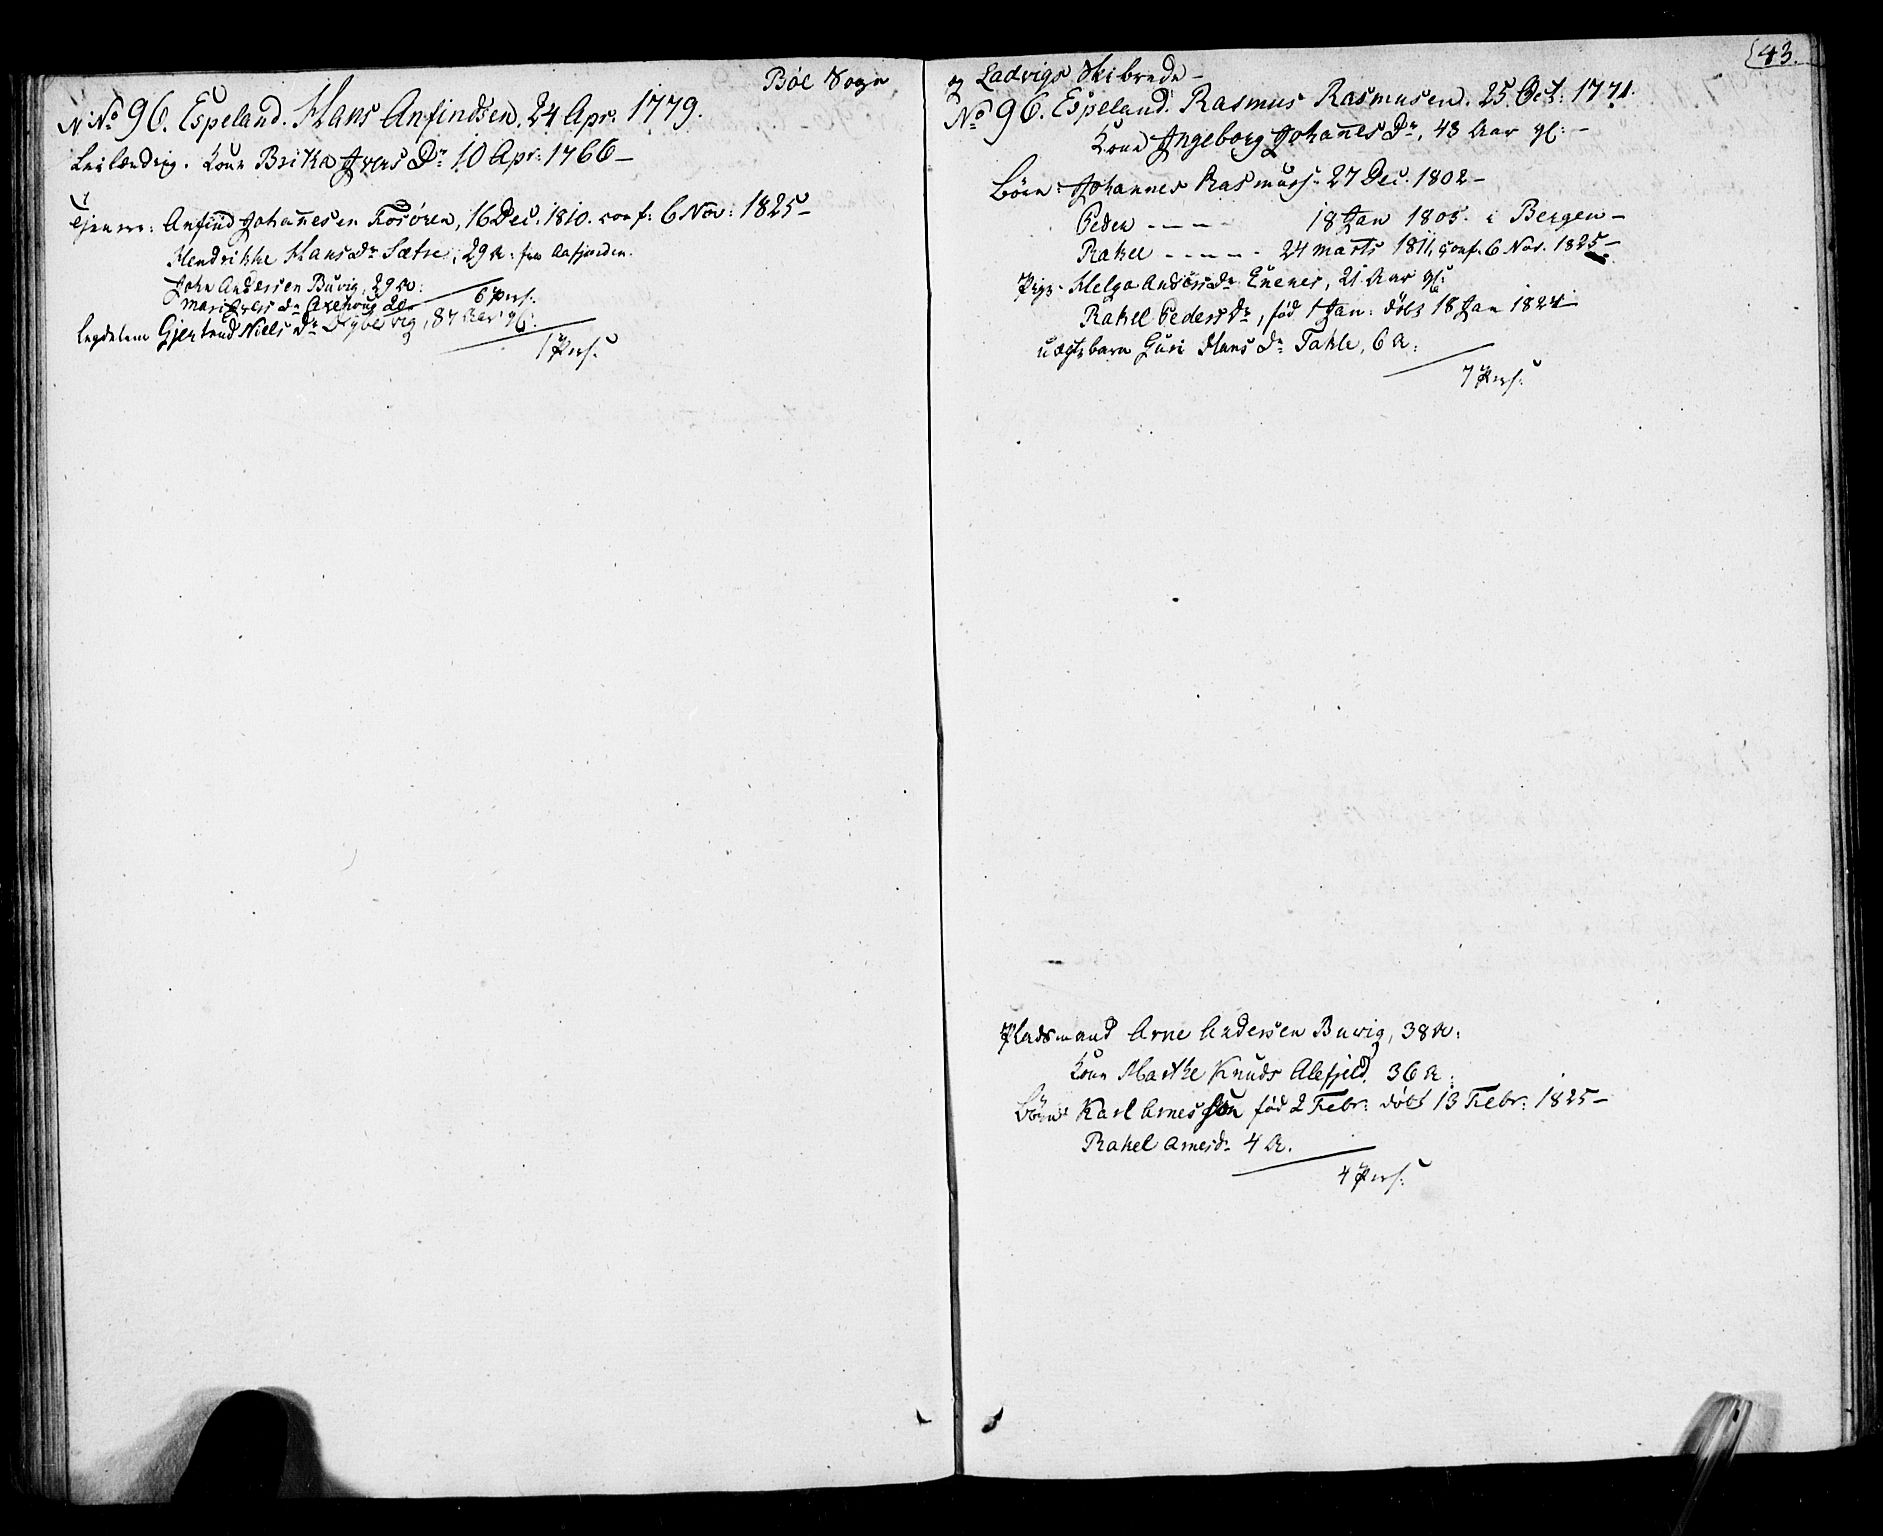 Böe Sogn
No 96. Espeland. Hans Anfindsen. 24 Apr: 1779.
Leilændig. Kone Britha Ivers Dr 10 Apr: 1766 –
Tjenere: Anfind Johannesen Kosören, 16 Dec. 1810. conf: 6 Nov: 1825 –
Hendrikke Hans Dr Sætre, 29 A: fra Aafjorden.
John Andersen Buvig, 29 A:
Mari Dr 20
6 Pers:
legdelem Gjertrud Niels Dr Dybevig, 87 Aar gl:
1 Pers:
43.
og Ladvigs Skibrede –
No 96. Espeland. Rasmus Rasmusen. 25 Oct: 1771.
Kone Ingeborg Johannes Dr, 43 Aar gl: –
Börn: Johannes Rasmuss: 27 Dec. 1802 –
Peder – – – – 18 Jan 1805. i Bergen –
Rakel – – – – – 24 marts 1811, conf. 6 Nov. 1825 –
Pige – Helga Anders Dr Enenes, 21 Aar gl:
Rakel Peders Dr, föd 1 Jan: döbt 18 Jan 1824 –
uægte barn Guri Hans Dr Takle, 6 A:
7 Pers:
Pladsmand Arne Andersen Buvig, 38 A:
Kone Marthe Knuds Alefjeld. 36 A:
Börn: Karl Arnes Sön föd 2 Febr: döbt 13 Febr: 1825 –
Rakel Arnesdr 4 A.
4 Pers: